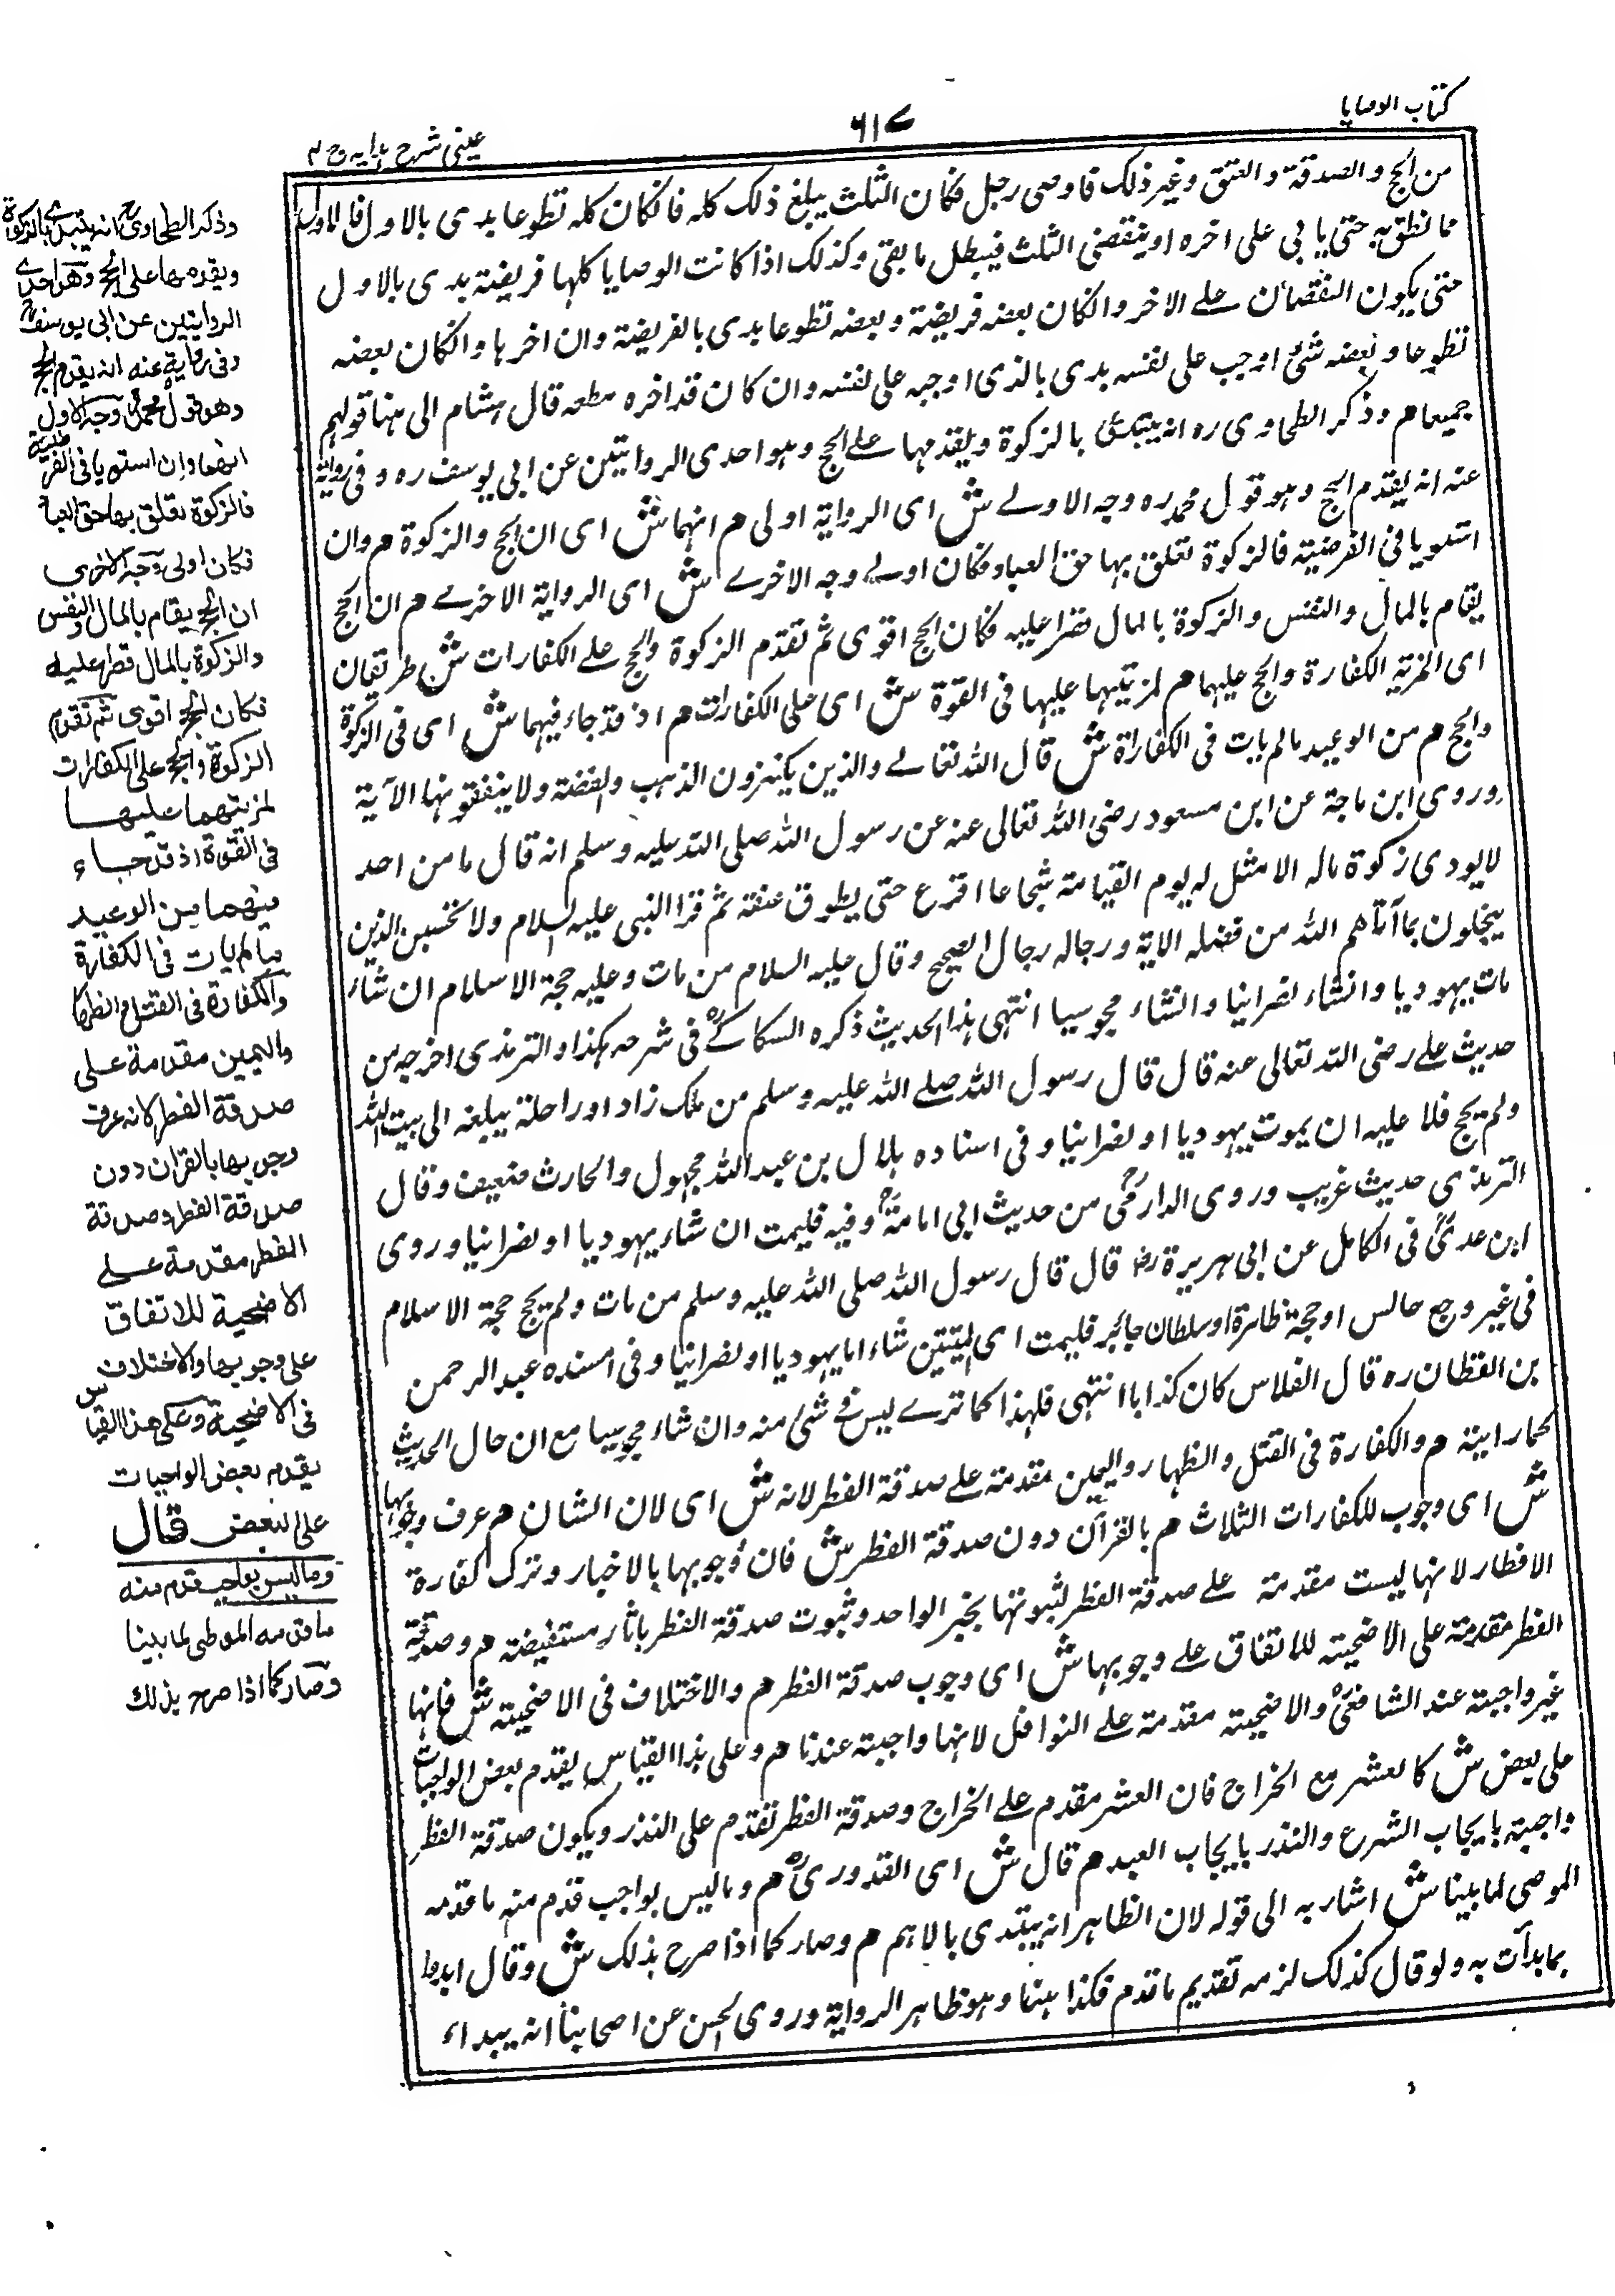 كتاب الوصايا
٦١٧
عينى شرح هدايه ج ٤
من الحج والصدقة والعتق وغير ذلك فاوصى رجل فكان الثلث يبلغ ذلك كله فانكان كله تطوعا بدى بالاول فالاول
مما نطق به حتى يأتى على اخره او ينقضى الثلث فيبطل ما بقى وكذلك اذا كانت الوصايا كلها فريضة بدى بالاول
حتى يكون النقصان على الاخر وانكان بعضه فريضة وبعضه تطوعا بدى بالفريضة وان اخرها وانكان بعضه
تطوعا وبعضه شئ اوجب على نفسه بدى بالذى اوجبه على نفسه وان كان قد اخره قال هشام الى هنا قولهم
جميعا م وذكر الطحاوى ره انه يبتدئ بالزكوة ويقدمها على الحج وهو احدى الروايتين عن ابى يوسف ره وفى رواية
عنه انه يقدم الحج وهو قول محمد ره وجه الاولى ش اى الرواية اولى م انهما ش اى ان الحج والزكوة م وان
استويا فى الفرضية فالزكوة تعلق بها حق العباد فكان اولى وجه الاخرى ش اى الرواية الاخرى م ان الحج
يقام بالمال والنفس والزكوة بالمال قصرا عليه فكان الحج اقوى ثم تقدم الزكوة والحج على الكفارات ش طريقان
اى المزية الكفارة والحج عليهما م لمزيتها عليها فى القوة ش اى على الكفارات م اذ قد جاء فيهما ش اى فى الزكوة
والحج م من الوعيد ما لم يات فى الكفارة ش قال الله تعالى والذين يكنزون الذهب والفضة ولا ينفقونها الآية
وروى ابن ماجة عن ابن مسعود رضى الله تعالى عنه عن رسول الله صلى الله عليه وسلم انه قال ما من احد
لا يودى زكوة ماله الا مثل له يوم القيامة شجاعا اقرع حتى يطوق عنقه ثم قرا النبى عليه السلام ولا تحسبن الذين
يبخلون بما آتاهم الله من فضله الاية ورجاله رجال الصحيح وقال عليه السلام من مات وعليه حجة الاسلام ان شاء
مات يهوديا وانشاء نصرانيا وانشاء مجوسيا انتهى هذا الحديث ذكره السكاكى ره فى شرحه هكذا والترمذى اخرجه من
حديث على رضى الله تعالى عنه قال قال رسول الله صلى الله عليه وسلم من ملك زاد او راحلة يبلغه الى بيت الله
ولم يحج فلا عليه ان يموت يهوديا او نصرانيا وفى اسناده هلال بن عبد الله مجهول والحارث ضعيف وقال
الترمذى حديث غريب وروى الدارمى من حديث ابى امامة وفيه فليمت ان شاء يهوديا او نصرانيا وروى
ابن عدى فى الكامل عن ابى هريرة رض قال قال رسول الله صلى الله عليه وسلم من مات ولم يحج حجة الاسلام
فى غير وجع حابس او حجة ظاهرة او سلطان جائر فليمت اى الميتتين شاء اما يهوديا او نصرانيا وفى اسنده عبد الرحمن
بن القطان ره قال الفلاس كان كذابا انتهى فلهذا كما ترى ليس فى شئ منه وان شاء مجوسيا مع ان حال الحديث
كما راينه م والكفارة فى القتل والظهار واليمين مقدمة على صدقة الفطر لانه ش اى لان الشان م عرف وجوبها
ش اى وجوب للكفارات الثلاث م بالقرآن دون صدقة الفطر ش فان وجوبها بالاخبار وترك كفارة
الافطار لانها ليست مقدمة على صدقة الفطر لثبوتها بخبر الواحد وثبوت صدقة الفطر باثار مستفيضة م وصدقة
الفطر مقدمة على الاضحية للاتفاق على وجوبها ش اى وجوب صدقة الفطر م والاختلاف فى الاضحية ش فانها
غير واجبة عند الشافعى ره والاضحية مقدمة على النوافل لانها واجبة عندنا م وعلى هذا القياس يقدم بعض الواجبات
على بعض ش كالعشر مع الخراج فان العشر مقدم على الخراج وصدقة الفطر تقدم على النذر ويكون صدقة الفطر
واجبة بايجاب الشرع والنذر بايجاب العبد م قال ش اى القدورى ره م وما ليس بواجب قدم منه ما قدمه
الموصى لما بينا ش اشار به الى قوله لان الظاهر انه يبتدى بالاهم م وصار كما اذا صرح بذلك ش وقال ابدوا
بما بدأت به ولو قال كذلك لزمه تقديم ما قدم فكذا ههنا وهو ظاهر الرواية وروى الحسن عن اصحابنا انه يبداء
وذكر الطحاوى انه يبتدئ بالزكوة
ويقدمها على الحج وهو احدى
الروايتين عن ابى يوسف
وفى رواية عنه انه يقدم الحج
وهو قول محمد وجه الاول
انهما وان استويا فى الفرضية
فالزكوة تعلق بها حق العباد
فكان اولى وجه الاخرى
ان الحج يقام بالمال والنفس
والزكوة بالمال قصرا عليه
فكان الحج اقوى ثم تقدم
الزكوة والحج على الكفارات
لمزيتهما عليها
فى القوة اذ قد جاء
فيهما من الوعيد
ما لم يات فى الكفارة
والكفارة فى القتل والظهار
واليمين مقدمة على
صدقة الفطر لانه عرف
وجوبها بالقران دون
صدقة الفطر وصدقة
الفطر مقدمة على
الاضحية للاتفاق
على وجوبها والاختلاف
فى الاضحية وعلى هذا القياس
يقدم بعض الواجبات
على البعض قال
وما ليس بواجب قدم منه
ما قدمه الموصى لما بينا
وصار كما اذا صرح بذلك